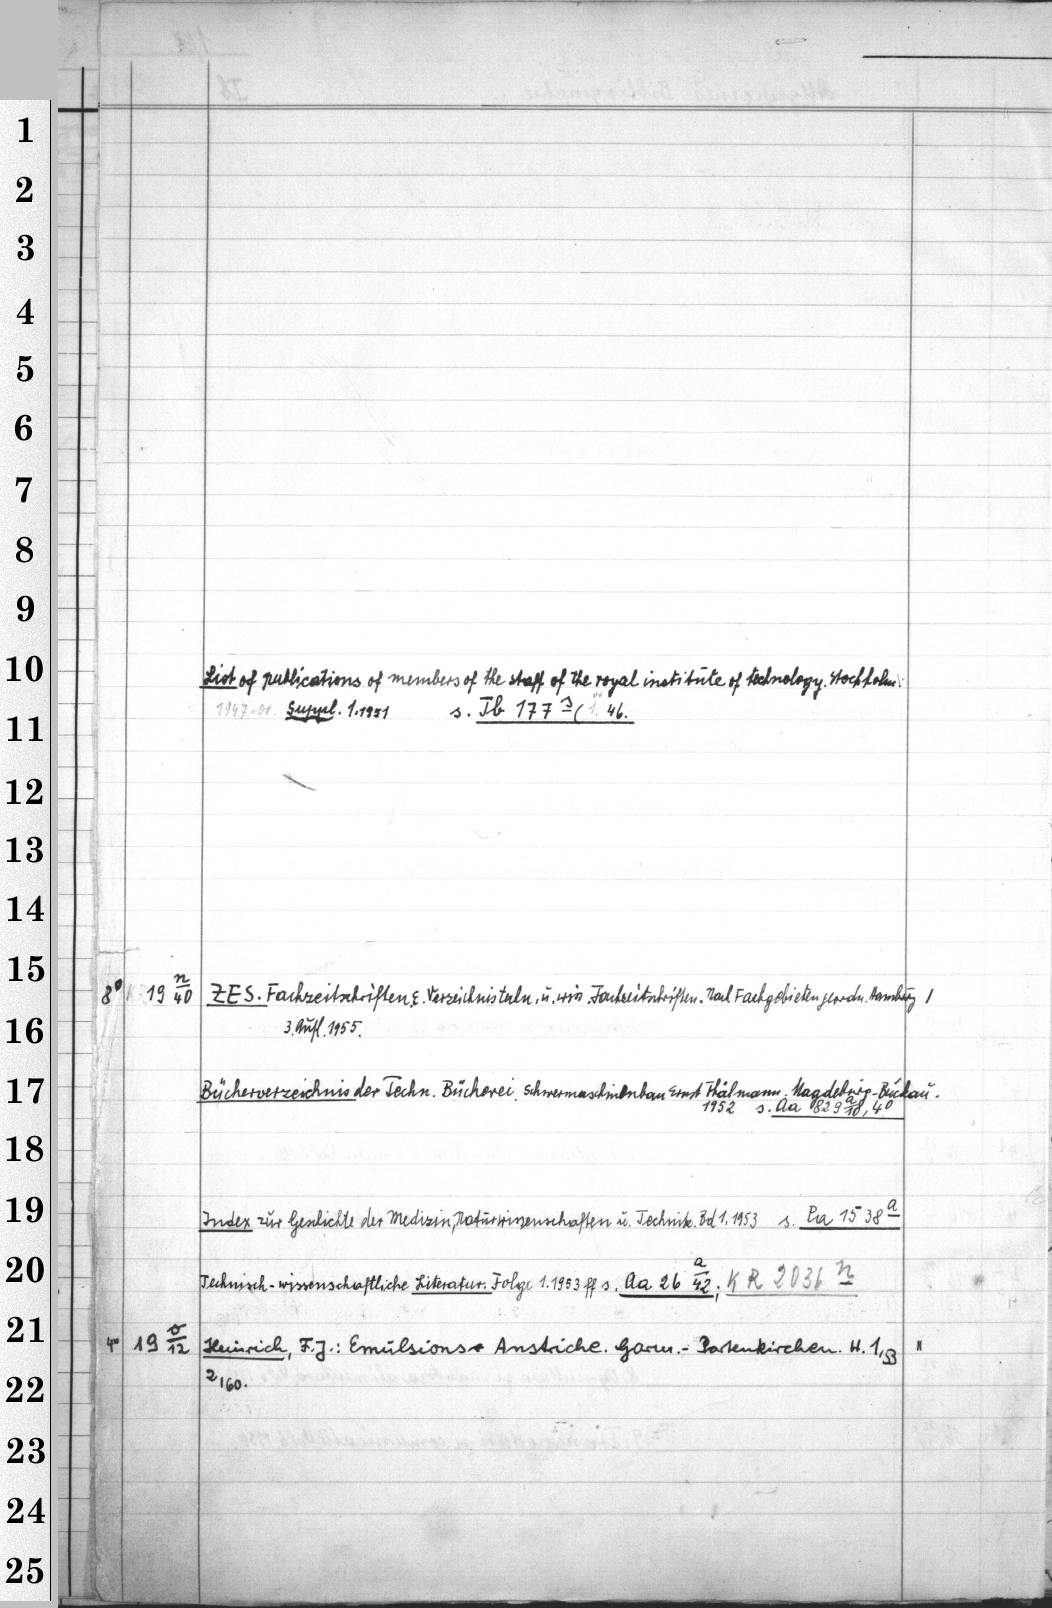 1
2
3
4
5
6
7
8
9
10
List of publications of members of the staff of the royal institute of technology. Stockholm
1947-50. Suppl. 1.1951 s. Ib 177 46.
11
12
13
14
15
8° 19 n/40 ZES. Fachzeitschriften, Fachzeitschriften. Nach Fachgebieten geordn. Hamburg /
3. Aufl. 1955.
16
17
Bücherverzeichnis der Techn. Bücherei. Schwermaschinenbau Ernst Thälmann. Magdeburg-Buckau.
1952 s. Aa 829 a/10, 4°
18
19
Index zur Geschichte der Medizin, Naturwissenschaften u. Technik. Bd 1. 1953 s. Ba 1538 a
20
Technisch-wissenschaftliche Literatur. Folge 1.1953 ff s. Aa 26 a/42; KR 2036 n
21
4° 19 o/12 Heinrich, F.J.: Emulsions-Anstriche. Garm.-Partenkirchen. H. 1,53 "
2,60.
22
23
24
25